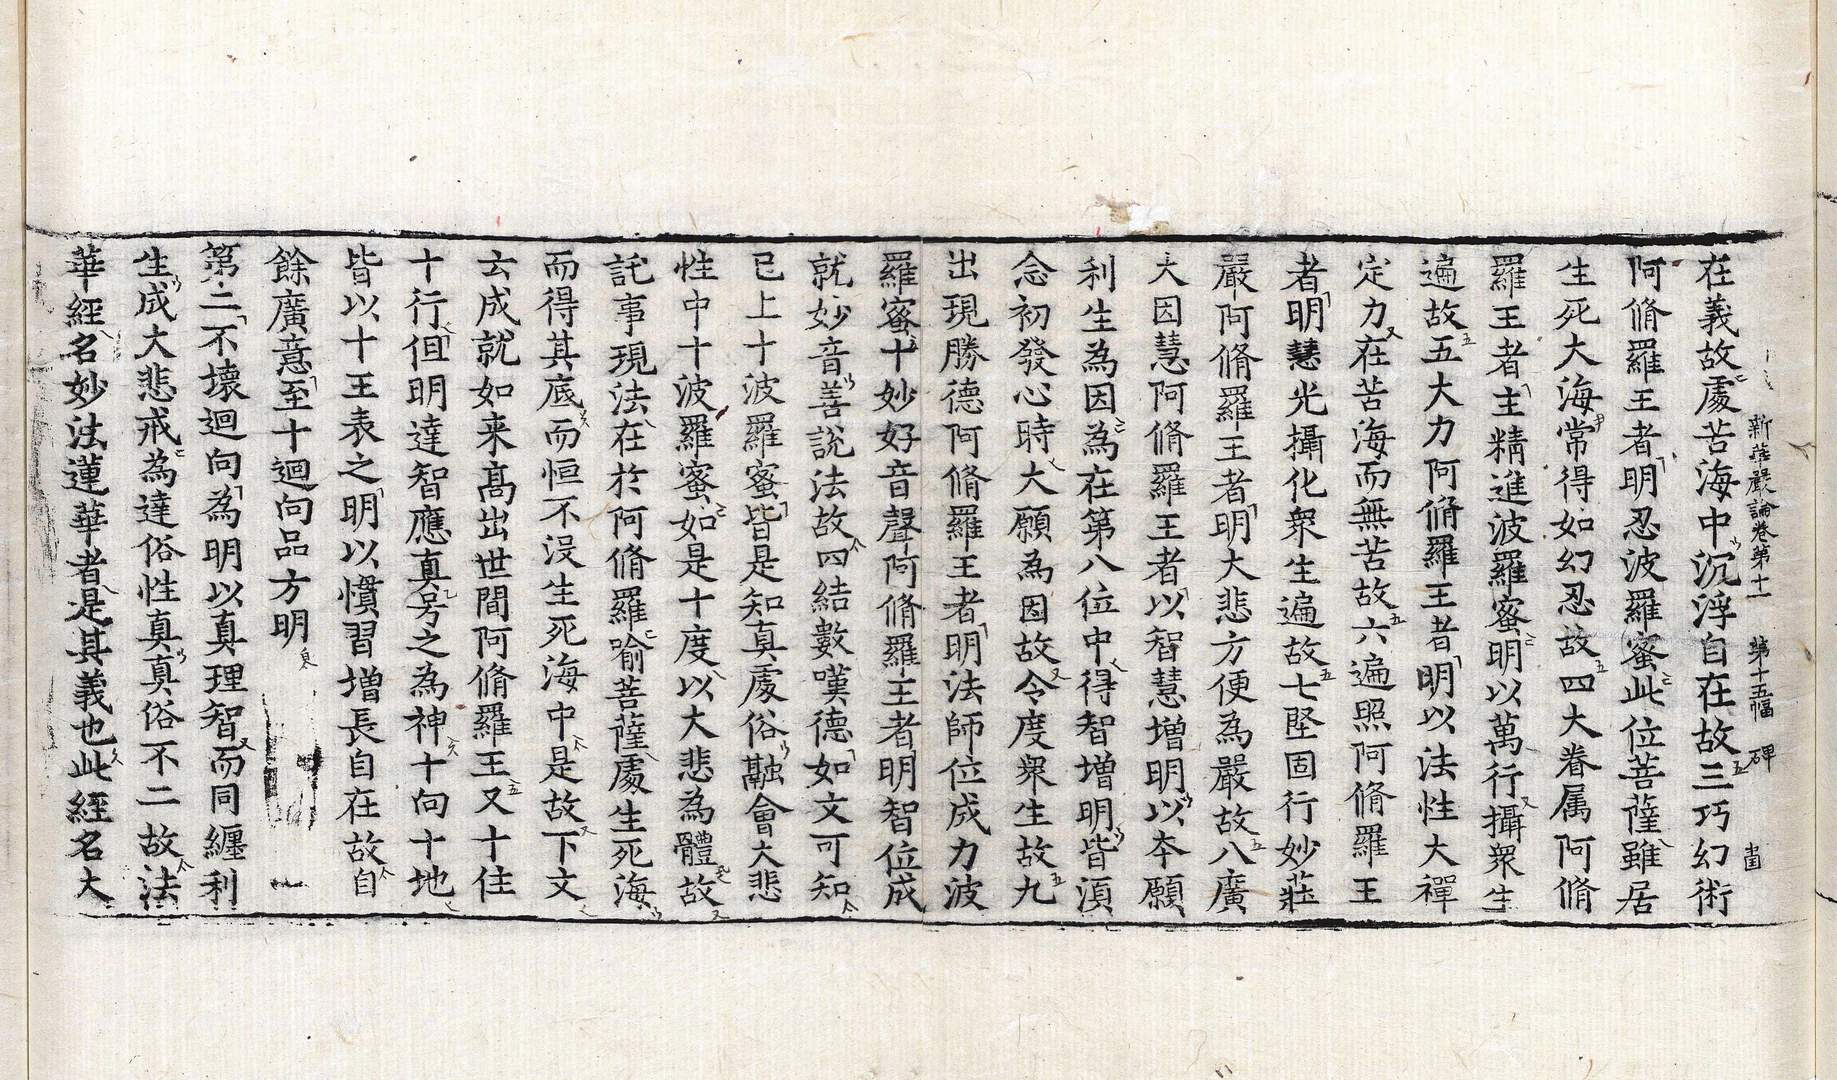 新華嚴論卷第十一 第十五幅 碑
在義故處苦海中沉浮自在故三巧幻術
阿脩羅王者明忍波羅蜜此位菩薩雖居
生死大海常得如幻忍故四大眷属阿脩
羅王者主精進波羅蜜明以萬行攝衆生
遍故五大力阿脩羅王者明以法性大禪
定力在苦海而無苦故六遍照阿脩羅王
者明慧光攝化衆生遍故七堅固行妙莊
嚴阿脩羅王者明大悲方便為嚴故八廣
大因慧阿脩羅王者以智慧增明以本願
利生為因為在第八位中得智增明皆湏
念初發心時大願為因故令度衆生故九
出現勝德阿脩羅王者明法師位成力波
羅蜜十妙好音聲阿脩羅王者明智位成
就妙音善說法故四結數嘆德如文可知
已上十波羅蜜皆是知真處俗融會大悲
性中十波羅蜜如是十度以大悲為體故
託事現法在於阿脩羅喻菩薩處生死海
而得其底而恒不沒生死海中是故下文
云成就如来髙出世間阿脩羅王又十住
十行但明達智應真号之為神十向十地
皆以十王表之明以慣習增長自在故自
餘廣意至十迴向品方明
第二不壞迴向為明以真理智而同纏利
生成大悲戒為達俗性真真俗不二故法
華經名妙法蓮華者是其義也此經名大